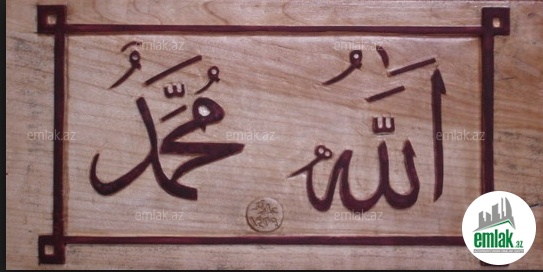 الله
محمد
emlak.az
emlak.az
emlak.az
emlak.az
emlak.az
emlak.az
emlak.az
emlak.az
emlak.az
emlak.az